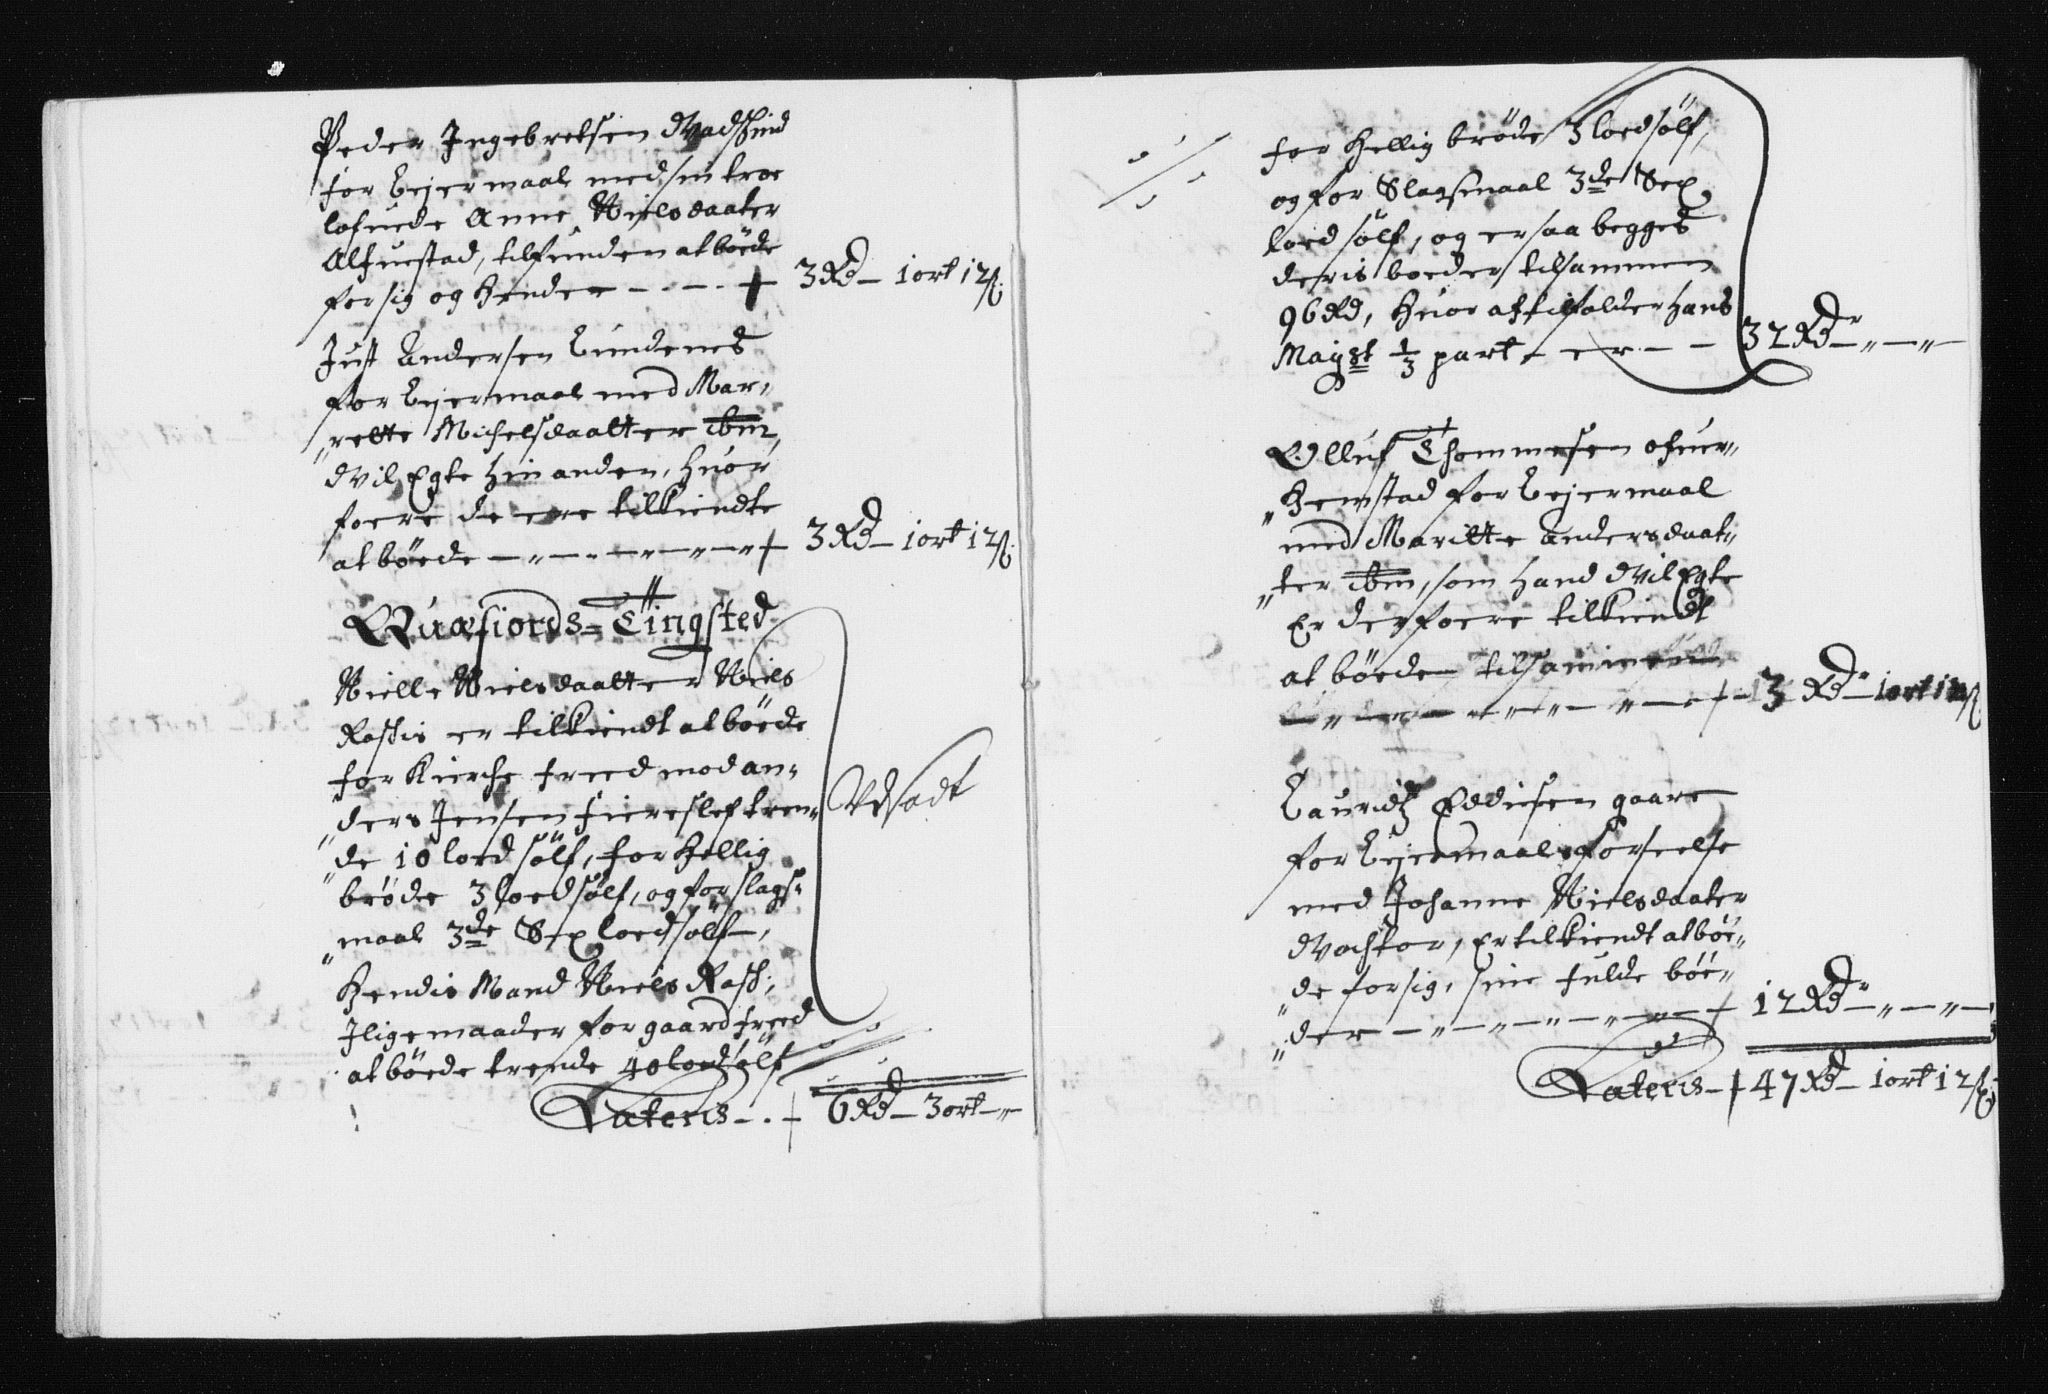 Peder Ingebretsen Wadskind
for Leyermaal med sin troe
lofuede Anne Nielsdaater
Alfuestad, tilfunden at böede
for sig og hender - - - - 3 Rd - 1 ort 12 ß.
Just Andersen Lundenes
for Leyermaal med Mar,
„rette Michelsdaatter ibm,
vil Egte hin anden, huor
foere de ere tilkiendte
at böede - „ - „ - „ - „ - 3 Rd - 1 ort 12 ß.
Quæfiords=Tingsted
Nielle Nielsdaatter Niels
Raskis er tilkiendt at böede
for Kircke freed mod an„
„ders Jensen Fiereslef tren„
„de 10 lood sölf, for hellig
brøde 3 loed sölf, og for slags„
„maal 3de Sex loed sölf,
Hendis Mand Niels Rask,
Iligemaader for gaardfreed
at böede trende 40 lood sölf
Udsadt
Lateris - . - 6 Rd - 3 ort - „
for hellig brøde 3 loed sölf,
og for Slagsmaal 3de Sex
loed sölf, og er saa begges
deris boeder tilsammen
96 Rd, huor af tilfalder hans
Mayst 1/3 part - er - - 32 Rdr - „ - „ -
Olluf Thommesen ofuer„
„Hemstad for Leyermaal
med Maritte Andersdaat„
„ter ibm, som hand vil Egte
Er derfoere tilkiendt
at böede tilsammen
- „ - „ - „ - „ - „ - 3 Rdr - 1 ort 12 ß
Lauridtz Eddisen gaare
for Leyermaals forseelse
med Johanne Nielsdaater
Wochtor, Er tilkiendt at böe„
„de for sig, sine fulde böe„
„der - „ - „ - „ - „ - „ - 12 Rdr - „ - „ -
Lateris - 47 Rd - 1 ort 12 ß